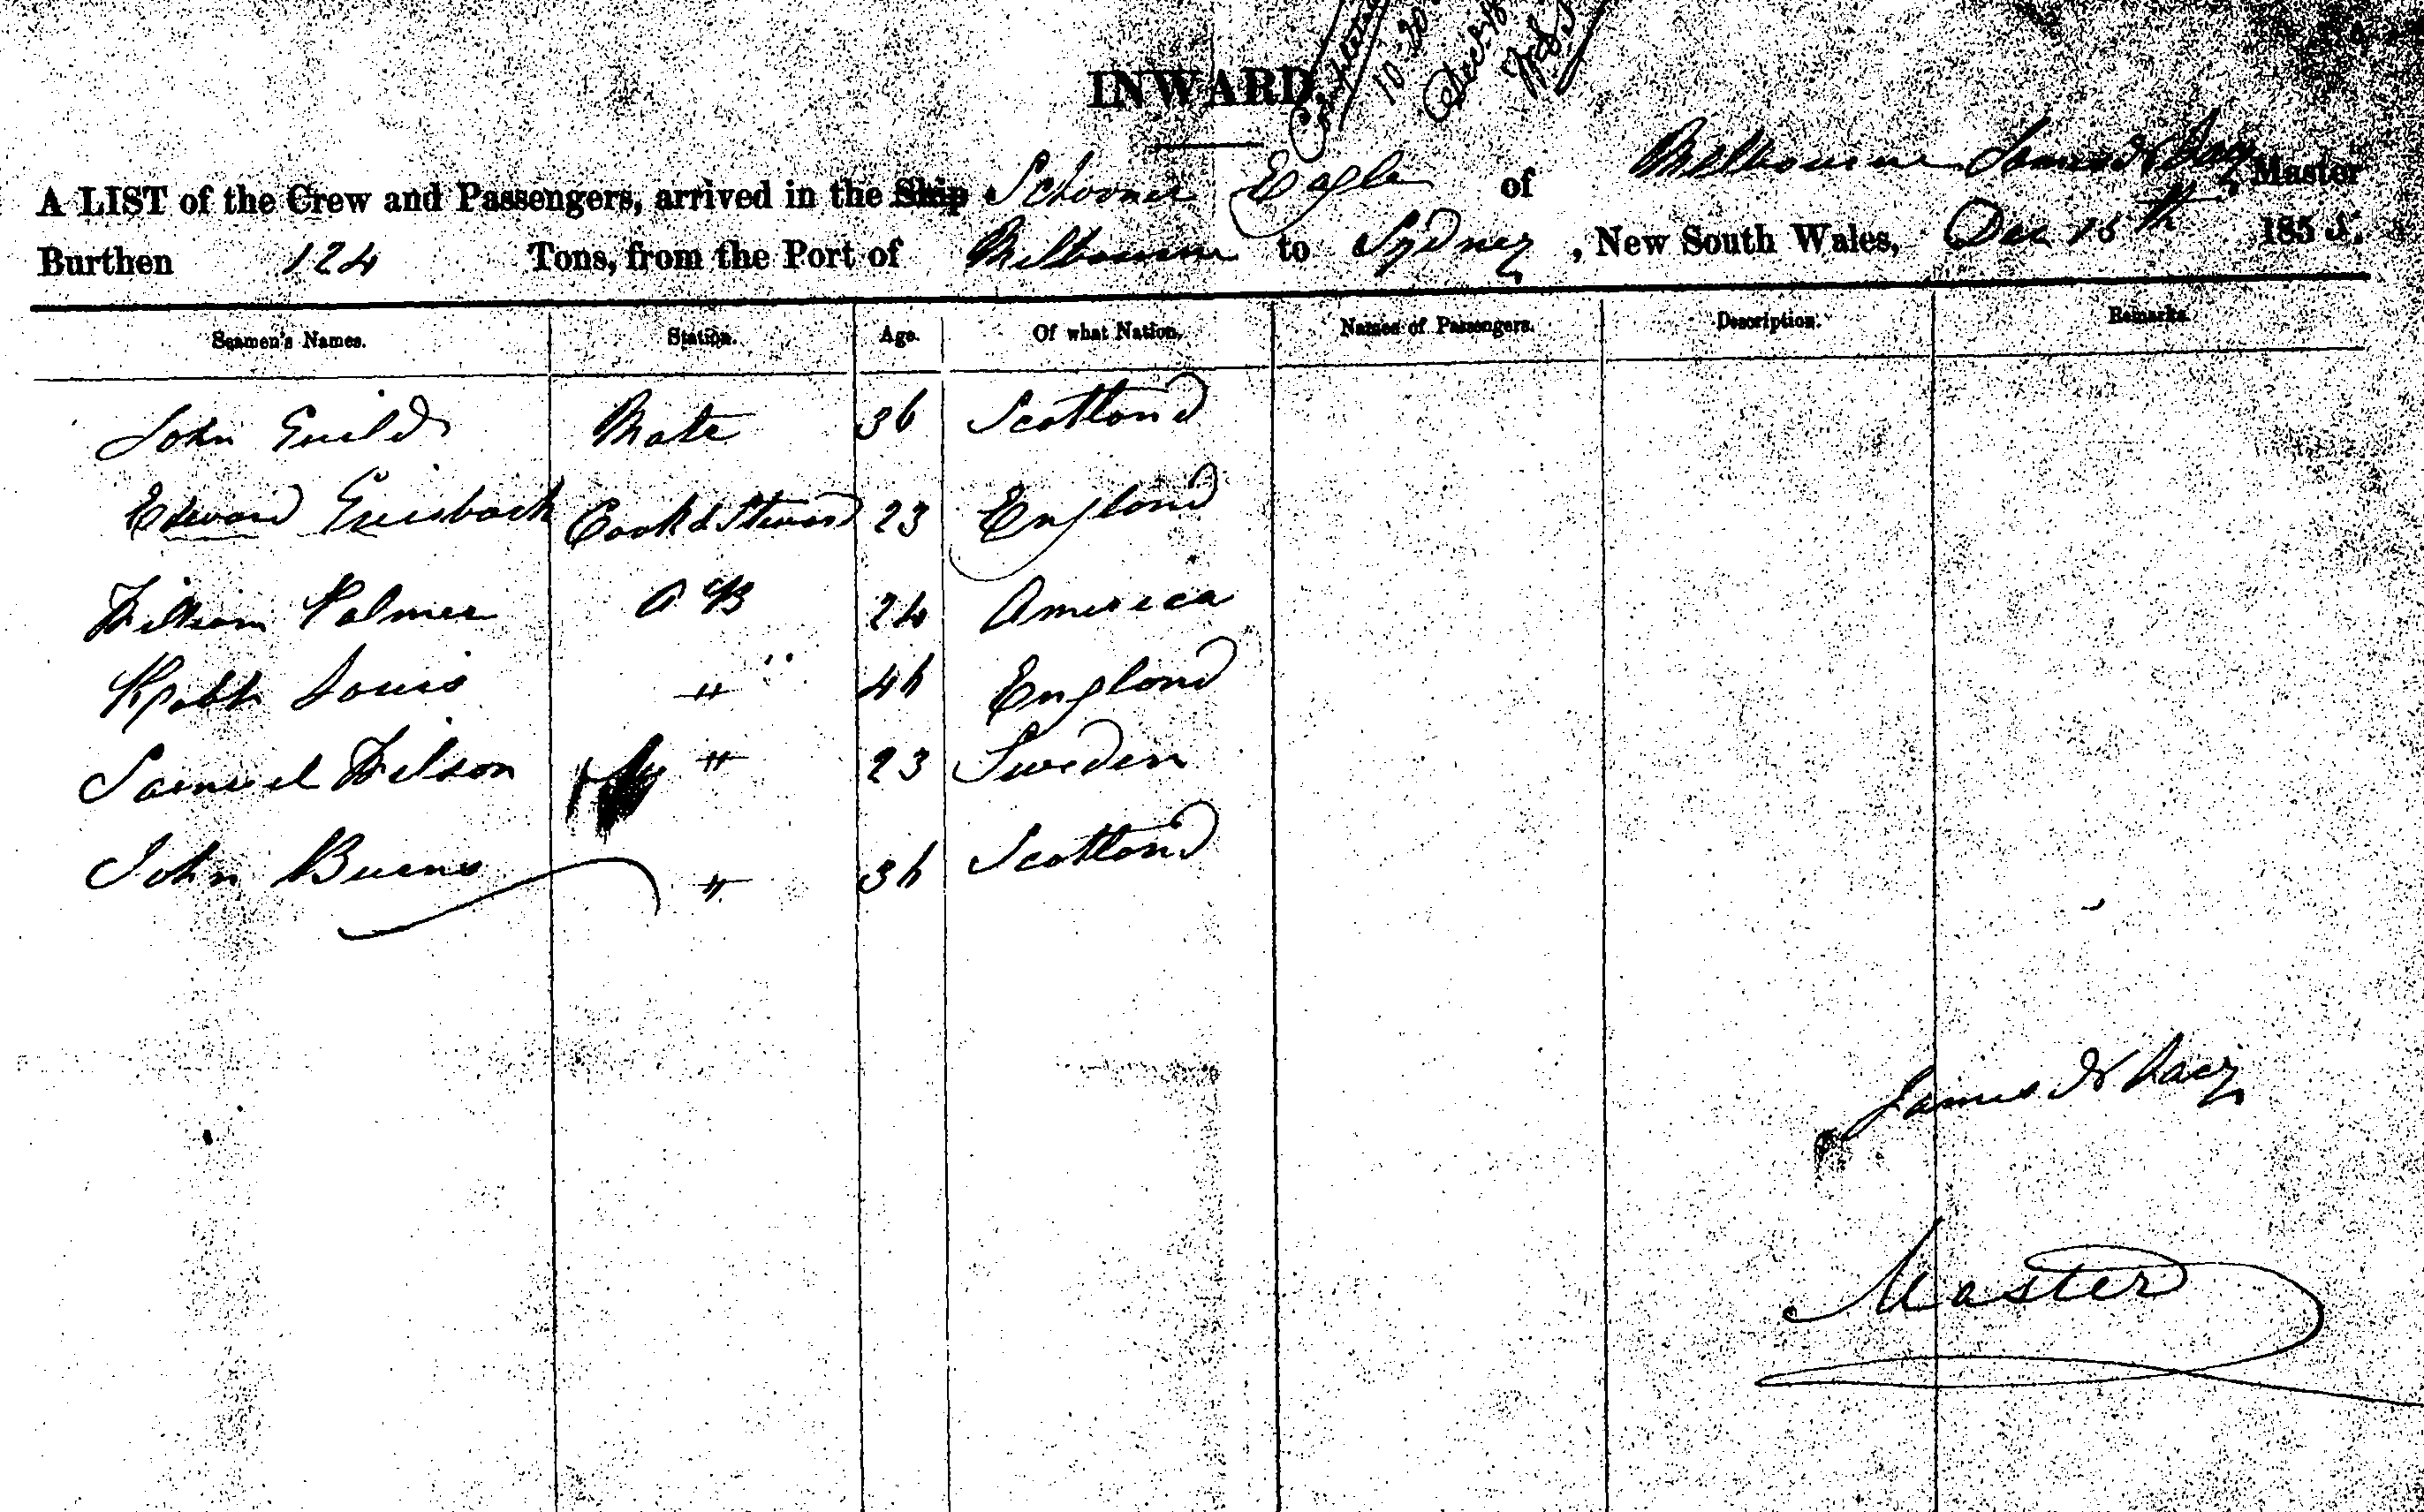 INWARD.
10-30
A LIST of the Crew and Passengers, arrived in the Ship Schooner Eagle of Melbourne James Master
Burthen 124 Tons, from the Port of Melbourne to Sydney, New South Wales, Dec 15th 1855.
Seamen's Names. Station. Age. Of what Nation. Names of Passengers. Description. Remarks.
John Guild Mate 36 Scotland
Edward Cook & Steward 23 England
William Palmer A B 24 America
Louis " England
Samuel Wilson " 23 Sweden
John Burns " Scotland
James
Master